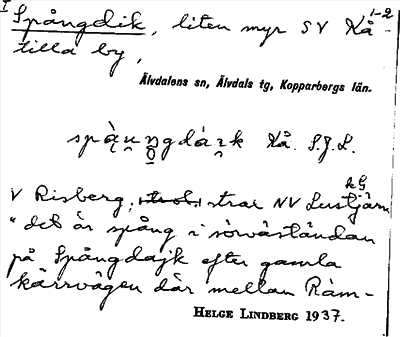 I 1-2
Spångdik, liten myr SV Kå-
tilla by,
Älvdalens sn, Älvdals tg, Kopparbergs län.
Kå. S.J.L.
kG
V Risberg, strax NV Lustjärn
"det är spång i sörväständan
på Spångdajk efter gamla
kärrvägen där mellan Räm-
HELGE LINDBERG 1937.